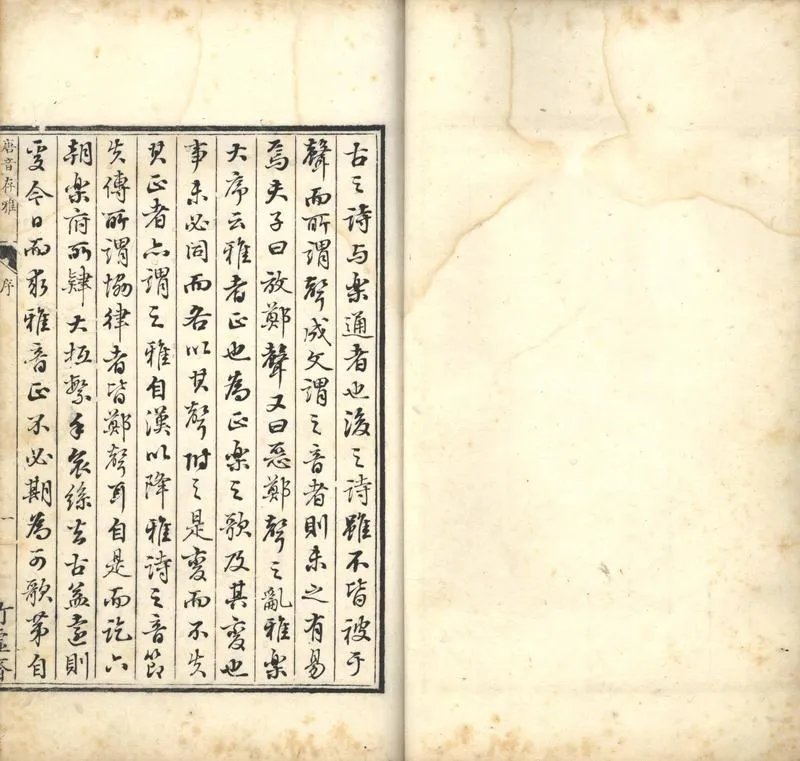 古之詩与樂通者也後之詩雖不皆被于
聲而所謂聲成文謂之音者則未之有易
焉夫子曰放鄭聲又曰惡鄭聲之亂雅樂
大序云雅者正也為正樂之歌及其變也
事未必同而各以其聲附之是變而不失
其正者亦謂之雅自漢以降雅詩之音節
失傳所謂協律者皆鄭聲耳自是而訖六
朝樂府所肄大抵繁手哀絲去古益遠則
今日而求雅音正不必期為可歌第自
唐音存雅 序 一